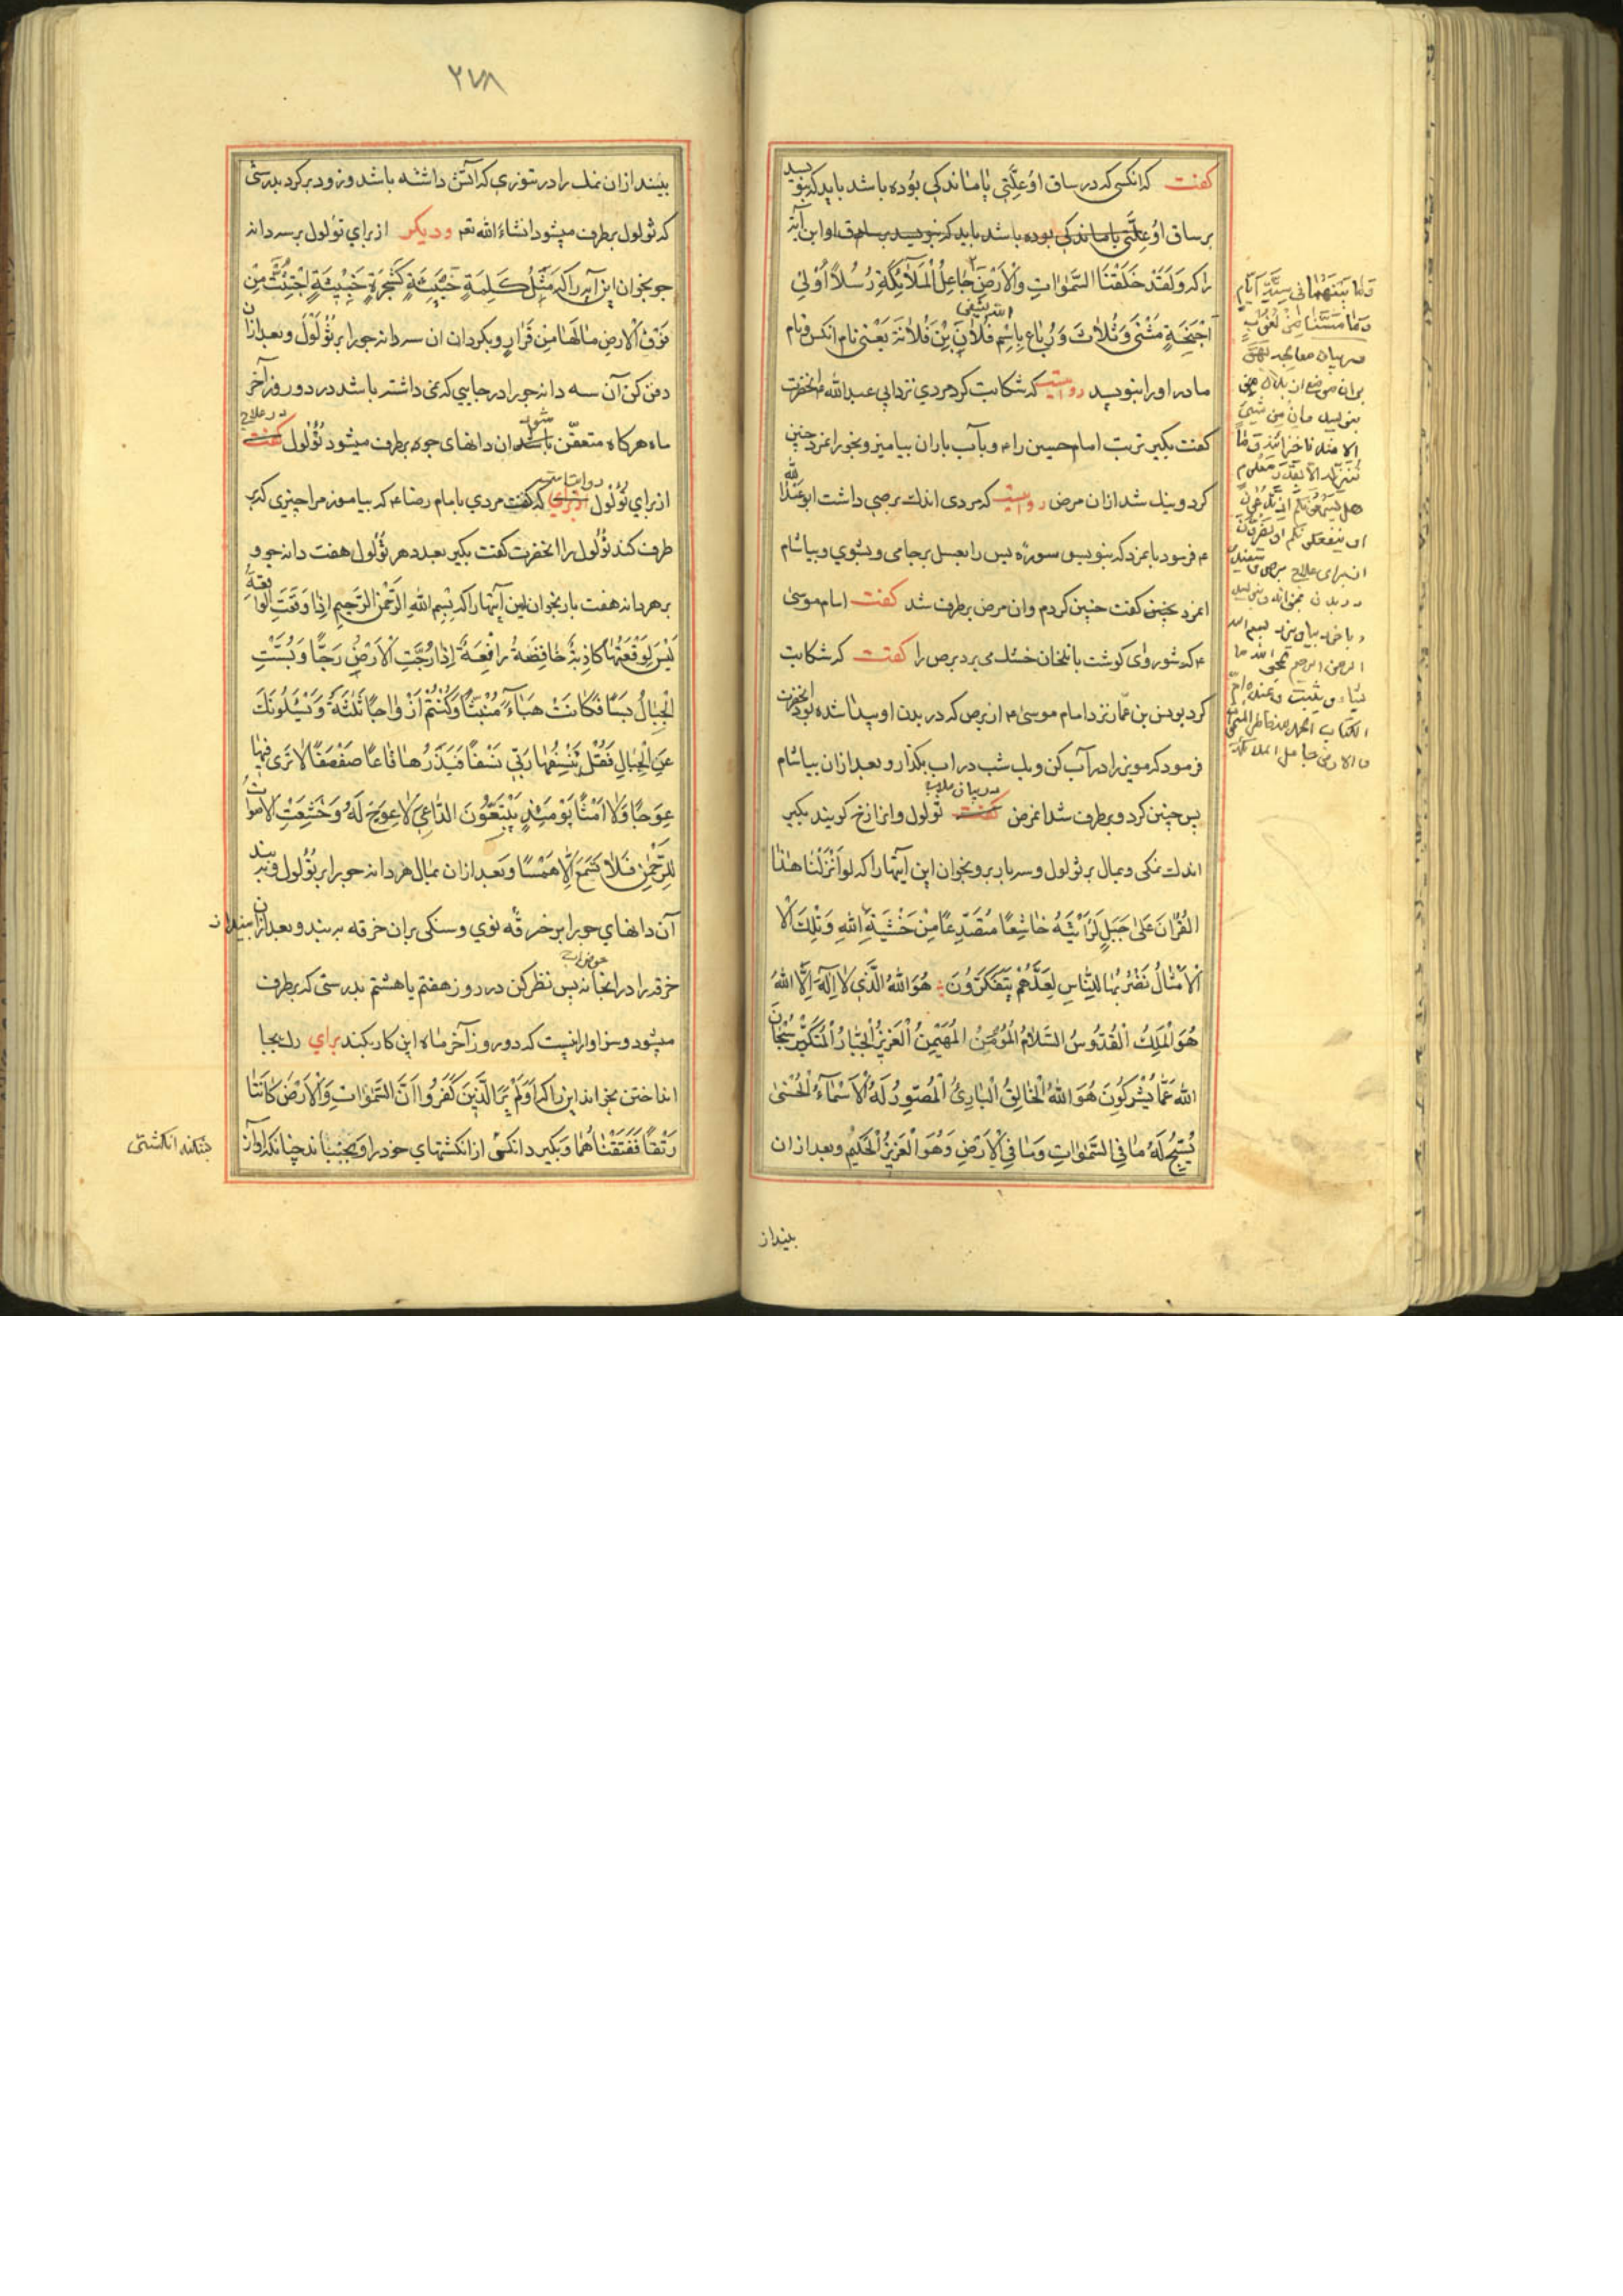 کفت که انکسی که در ساق او علّتی یا ماندکی بوده باشد باید که بنویسد
بر ساق او علّتی یا ماندکی بوده باشد باید که بنویسد بر ساق او این آیة
را که وَلَقَدْ خَلَقْنَا السَّمٰوٰاتِ وَالْاَرْضَ جٰاعِلُ الْمَلاٰئِکَةِ رُسُلاً اُوْلِی
اَجْنِحَةٍ مَثْنٰی وَثُلاٰثَ وَرُبٰاع بِاِسْمِ فُلاٰن بْن فُلاٰنَة یَعْنی نام انکس و نام
مادر او را بنویسد روایتست که شکایت کرد مردی نزد ابی عبدالله ع انحضرت
کفت بکیر تربت امام حسین را ع و بآب باران بیامیز و بخور انمرد چنین
کرد و نیک شد از ان مرض روایتست که مردی اندک برصی داشت ابو عبدالله
ع فرمود بانمرد که بنویس سورۀ یس را بعسل بر جامی و بشوی و بیاشام
انمرد بچنین کفت چنین کردم و ان مرض برطرف شد کفت امام موسی
ع که شوروای کوشت با خشک می برد برص را کفت که شکایت
کرد یونس بن عمّار نزد امام موسی ع از برص که در بدن او پیدا شده بود انحضرت
فرمود که مویز را در آب کن و یک شب در اب بکذار و بعد از ان بیاشام
پس چنین کرد و برطرف شد انمرض کفت در بیان علاج ثولول و انرا زخ کویند بکیر
اندک نمکی و بمال بر ثولول و سه بار برو بخوان این آیتها را که لَوْ اَنْزَلْنٰا هٰذَا
الْقُرْاٰنَ عَلٰی جَبَلٍ لَرَاَیْتَهُ خٰاشِعًا مُتَصَدِّعًا مِنْ خَشْیَةِ اللهِ وَتِلْكَ الْا
اَلْاَمْثٰالُ نَضْرِبُهٰا لِلنّٰاسِ لَعَلَّهُمْ یَتَفَکَّرُونَ هُوَ اللهُ الَّذی لاٰ اِلٰهَ اِلَّا اللهُ
هُوَ الْمَلِكُ الْقُدُّوسُ السَّلاٰمُ الْمُؤْمِنُ الْمُهَیْمِنُ الْعَزِیزُ الْجَبّٰارُ الْمُتَکَبِّرُ سُبْحٰانَ
اللهِ عَمّٰا یُشْرِکُونَ هُوَ اللهُ الْخٰالِقُ الْبٰارِئُ الْمُصَوِّرُ لَهُ الْاَسْمٰآءُ الْحُسْنٰی
یُسَبِّحُ لَهُ مٰا فِی السَّمٰوٰاتِ وَمٰا فِی الْاَرْضِ وَهُوَ الْعَزِیزُ الْحَکیمُ و بعد از ان
بینداز
وما بینهما فی ستة ایام
وما مسّنا من لغوب
در بیان معالجه بهق
بنویسد وان من شیئ
الا عندنا خزائنه وما
ننزله الا بقدر معلوم
هل یسمعونکم اذ تدعون
او ینفعونکم او یضرون
الرحمن الرحیم یمحی الله ما
یشاء و یثبت وعنده ام
الکتاب الحمد لله فاطر السموات
والارض جاعل الملائکة
٢٧٨
بینداز ان نمک را در تنوری که آتش داشته باشد و زود برکرد بدرستی
که ثولول برطرف میشود انشاءالله تعم و دیکر از برای ثؤلول بر سه دانه
جو بخوان این آیه را که مَثَلُ کَلِمَةٍ خَبیثَةٍ کَشَجَرَةٍ خَبیثَةٍ اجْتُثَّتْ مِنْ
فَوْقِ الْاَرْضِ مٰالَهٰا مِنْ قَرٰارٍ و بکردان ان سه دانه جو را بر ثُؤْلُولُ و بعد از ان
دفن کن آن سه دانه جو را در جایی که نمی داشته باشد در دو روز آخر
ماه هرکاه متعفّن شود ان دانهای جو برطرف میشود ثؤلول کفت در علاج
از برای ثؤلول روایتست که کفت مردی بامام رضا ع که بیاموز مرا چیزی که بر
طرف کند ثؤلول را انحضرت کفت بکیر بعدد هر ثؤلول هفت دانه جو و
بر هر دانه هفت بار بخوان این آیتها را که بِسْمِ اللهِ الرَّحْمٰنِ الرَّحیمِ اِذٰا وَقَعَتِ الْوٰاقِعَةُ
لَیْسَ لِوَقْعَتِهٰا کٰاذِبَةٌ خٰافِضَةٌ رٰافِعَةٌ اِذٰا رُجَّتِ الْاَرْضُ رَجًّا وَبُسَّتِ
الْجِبٰالُ بَسًّا فَکٰانَتْ هَبٰآءً مُنْبَثًّا وَکُنْتُمْ اَزْوٰاجًا ثَلٰثَةً وَیَسْئَلُونَكَ
عَنِ الْجِبٰالِ فَقُلْ یَنْسِفُهٰا رَبّی نَسْفًا فَیَذَرُهٰا قٰاعًا صَفْصَفًا لاٰ تَرٰی فیهٰا
عِوَجًا وَلاٰ اَمْتًا یَوْمَئِذٍ یَتَّبِعُونَ الدّٰاعِیَ لاٰ عِوَجَ لَهُ وَخَشَعَتِ الْاَصْوٰاتُ
لِلرَّحْمٰنِ فَلاٰ تَسْمَعُ اِلّٰا هَمْسًا و بعد از ان بمال هر دانه جو را بر ثؤلول و ببند
آن دانهای جو را بر خرقۀ نوی و سنکی بران خرقه ببند و بعد از ان بینداز
خرقه را در انجا پس نظر کن در روز هفتم یا هشتم بدرستی که برطرف
میشود و سزاوار انیست که دو روز آخر ماه این کار بکند برای
انداختن بخواند این را که اَوَلَمْ یَرَ الَّذینَ کَفَرُوا اَنَّ السَّمٰوٰاتِ وَالْاَرْضَ کٰانَتٰا
رَتْقًا فَفَتَقْنٰاهُمٰا و بکیرد انکس از انکشتهای خود را و بجنباند چنانکه آواز
بکند انکشتی